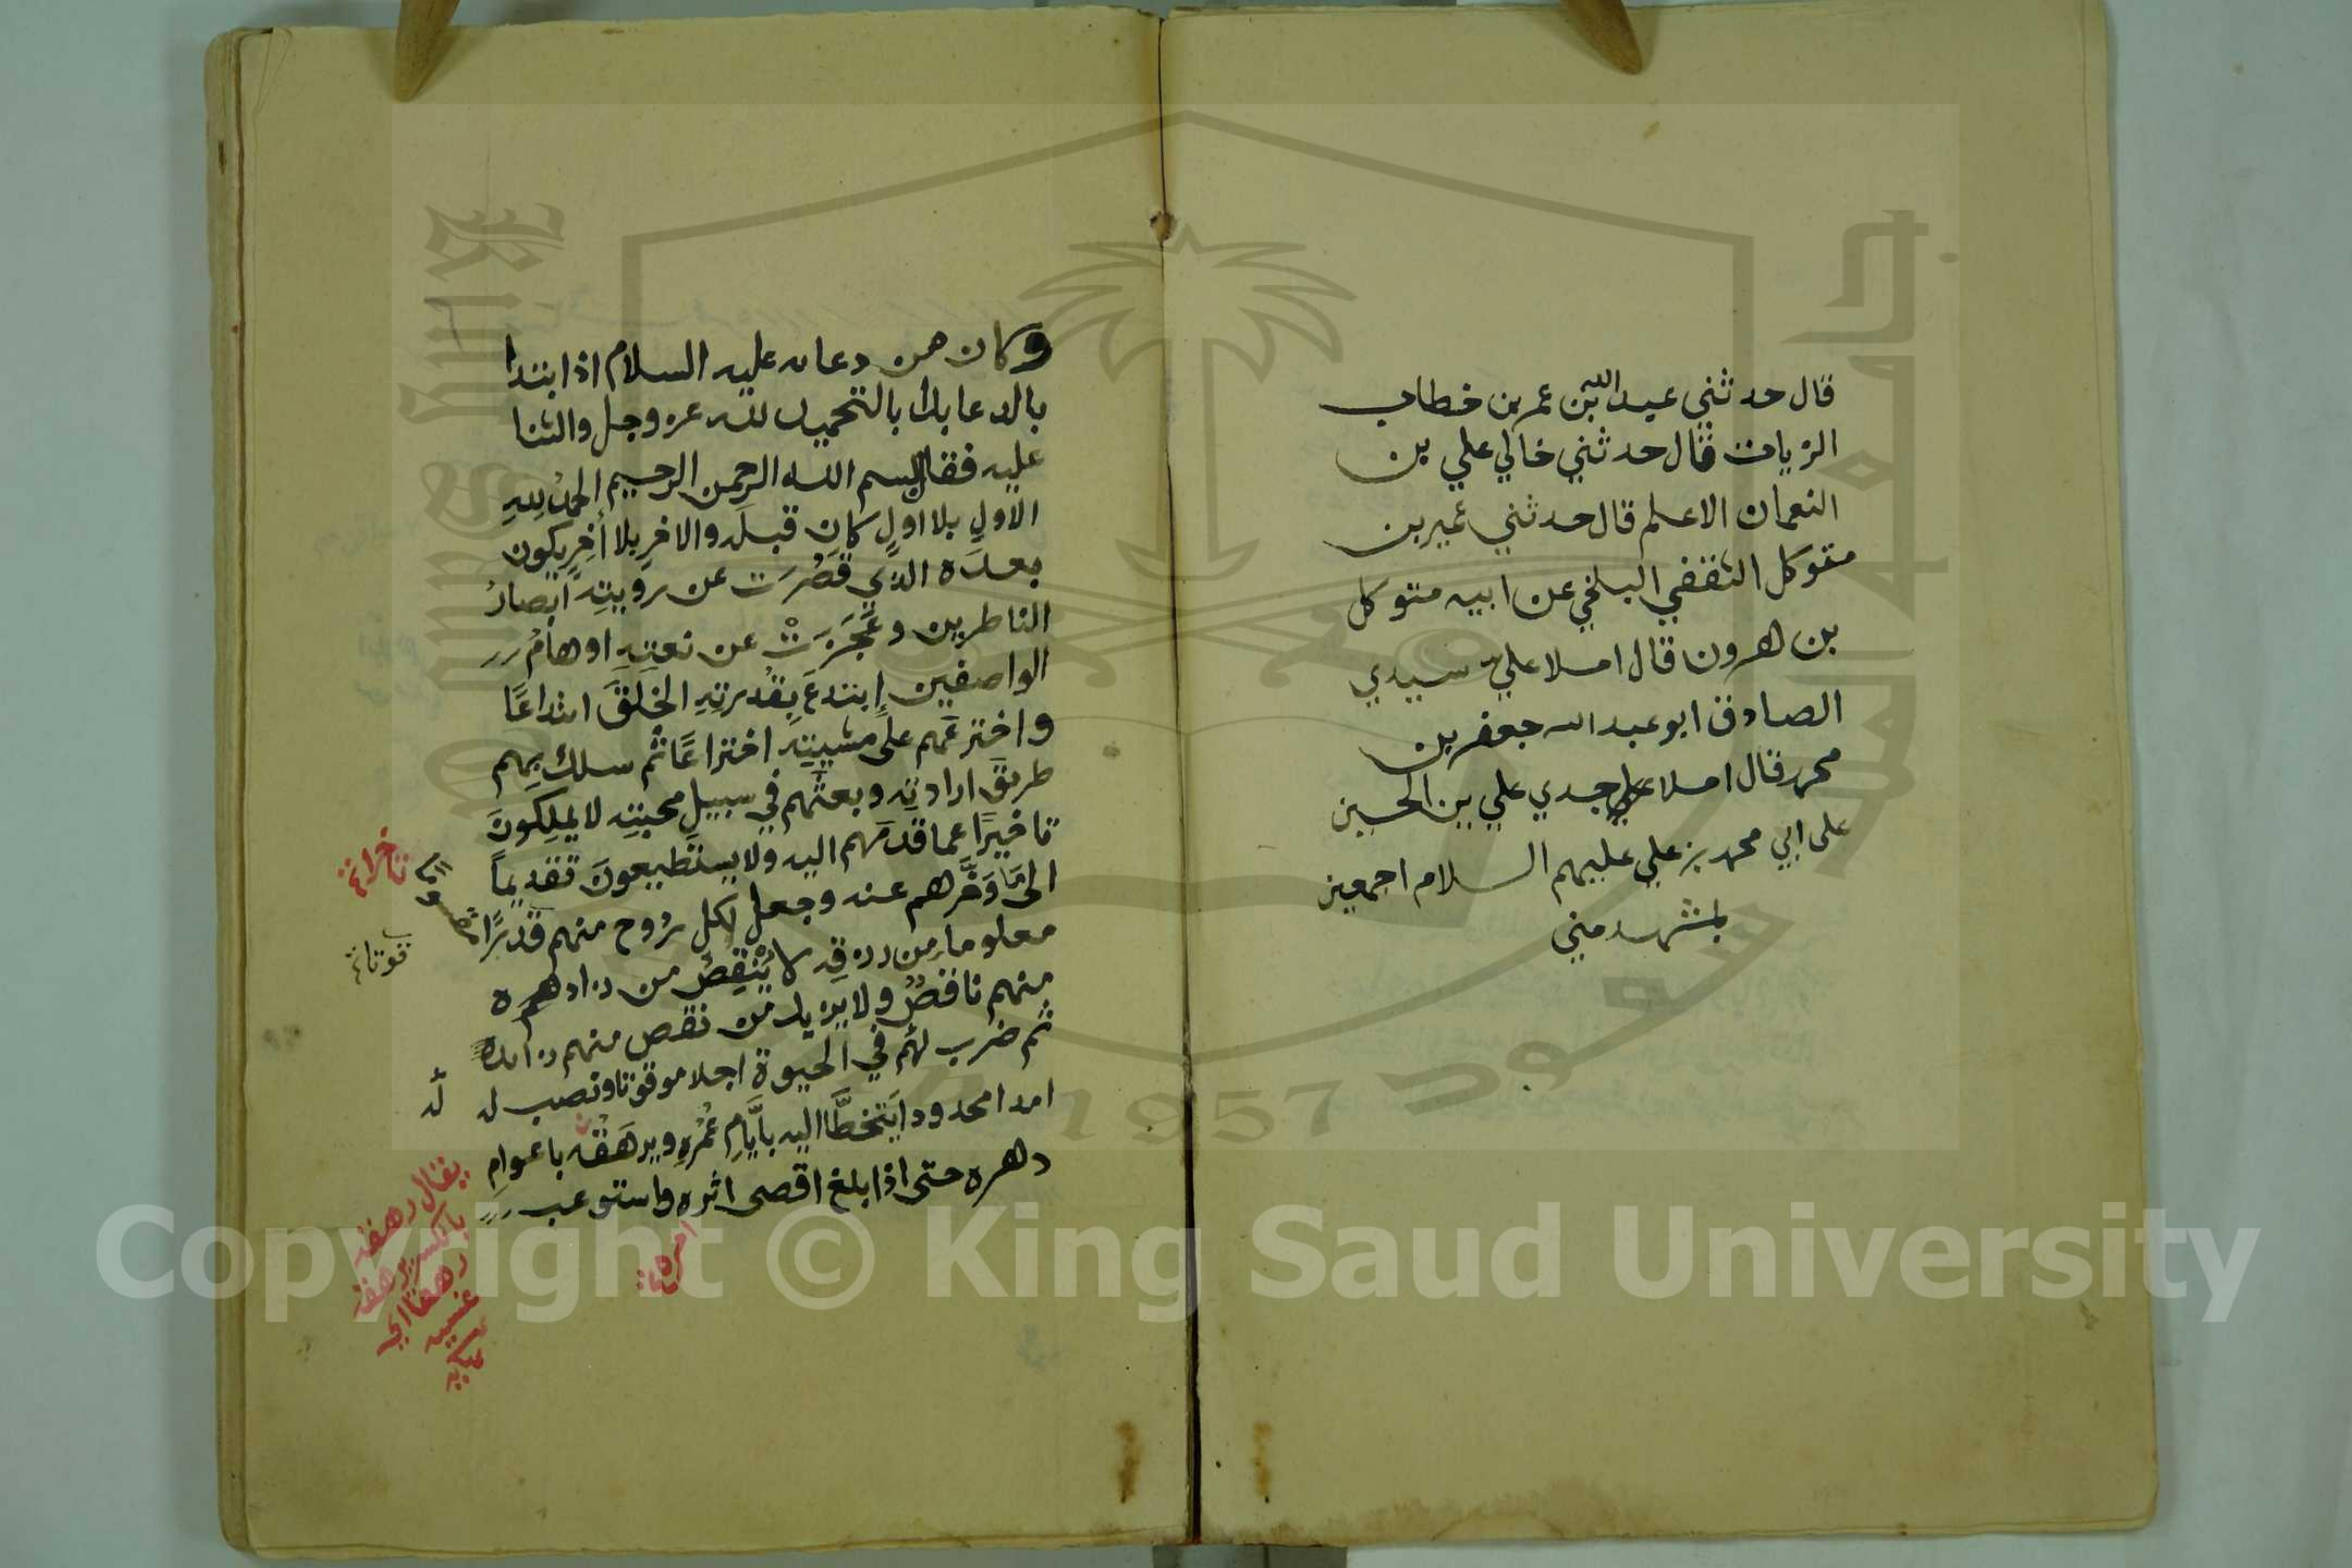 قال حدثني عبد الله بن عمر بن خطاب
الزيات قال حدثني خالي علي بن
النعمان الاعلم قال حدثني عمير بن
متوكل الثقفي البلخي عن ابيه متوكل
بن هرون قال املا علي سيدي
الصادق ابو عبد الله جعفر بن
محمد قال املا علي جدي علي بن الحسين
على ابي محمد بن علي عليهم السلام اجمعين
بمشهد مني
وكان من دعائه عليه السلام اذا ابتدا
بالدعا بدأ بالتحميد لله عز وجل والثنا
عليه فقال بسم الله الرحمن الرحيم الحمدُ لِلهِ
الاولِ بلا اولٍ كان قبلَه والاخرِ بلا أخِرٍ يكون
بعدَه الذي قَصُرَت عن رويتِه ابصارُ
الناظرين وعَجَزَتْ عن نعتِهِ اوهامُ
الواصفين إبتدعَ بِقُدرتِهِ الخَلقَ ابتداعًا
واخترعَهم على مشيتِهِ اختراعًا ثم سلك بِهِم
طريقَ ارادتِه وبعثَهم في سبيلِ محبتِه لا يملِكونَ
تاخيرًا عما قدمَهم اليه ولا يستطيعونَ تقديمًا
الى ما وَخَّرهم عنه وجعل لكل رُوح منهم قدرًا
معلوما من رزقِه لا يُنقِصُ من زاده
منهم ناقصٌ ولا يزيد من نقص منهم زائد
ثم ضرب لهُم في الحيوة اجلا موقوتا ونصب له
امدا محدودا يَتخطَّا اليه بأَيَّامِ عُمْرِهِ ويرهَقُه باعوامِ
دهره حتى اذا بلغ اقصى اثره واستوعب
تاخرا
قوتا
له
يقال رهقه
بالكسر يرهقه
رهقا اي
غشيه
امره
Copyright © King Saud University
1957